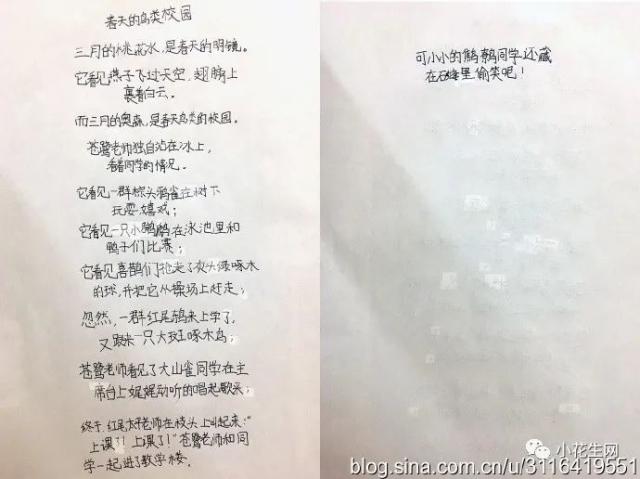 春天的鸟类校园
三月的桃花水,是春天的明镜。
它看见燕子飞过天空,翅膀上
裹着白云。
而三月的奥森,是春天鸟类的校园。
苍鹭老师独自站在冰上,
看着同学的情况。
它看见一群棕头鸦雀在树下
玩耍嬉戏;
它看见一只小䴙䴘在泳池里和
鸭子们比赛;
它看见喜鹊们抢走了灰头绿啄木
的球,并把它从操场上赶走;
忽然,一群红尾鸫来上学了,
又跟来一只大斑啄木鸟;
苍鹭老师看见了大山雀同学在主
席台上娓娓动听的唱起歌来;
终于,红尾老师在枝头上叫起来:“
上课了!上课了!”苍鹭老师和同
学一起进了教学楼。
可小小的鹪鹩同学还藏
在石缝里偷笑呢!
小花生网
blog.sina.com.cn/u/3116419551